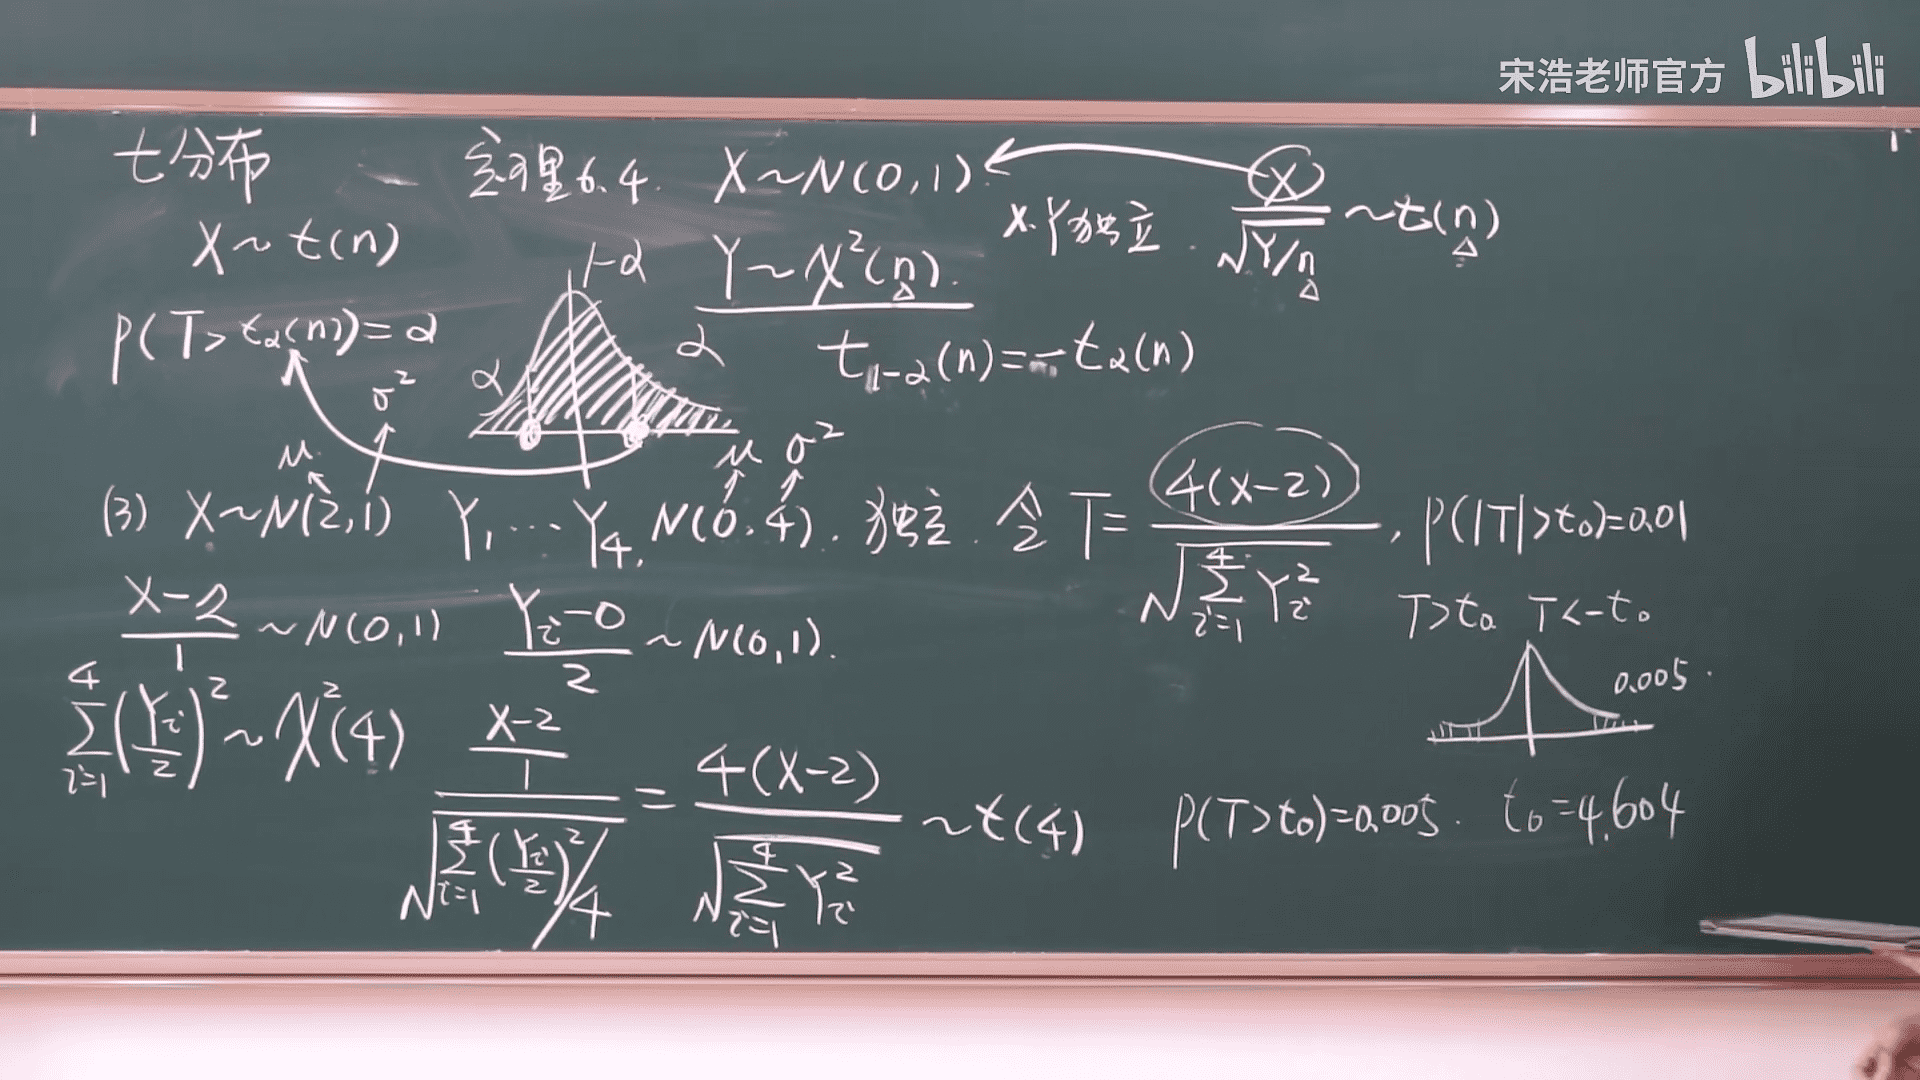 宋浩老师官方 bilibili
t分布 定理6.4. X~N(0,1).
X~t(n) Y~χ²(n). X.Y独立. X/√(Y/n) ~t(n)
1-α
P(T>t_α(n))=α α α t_{1-α}(n)=-t_α(n)
μ σ² μ σ²
(3) X~N(2,1) Y₁…Y₄, N(0,4). 独立. 令 T= 4(X-2)/√(∑_{i=1}^{4} Y_i²) , P(|T|>t₀)=0.01
(X-2)/1 ~N(0,1) (Y_i-0)/2 ~N(0,1). T>t₀ T<-t₀
0.005.
∑_{i=1}^{4}(Y_i/2)² ~ χ²(4)
((X-2)/1)/√(∑_{i=1}^{4}(Y_i/2)²/4) = 4(X-2)/√(∑_{i=1}^{4} Y_i²) ~t(4) P(T>t₀)=0.005. t₀=4.604